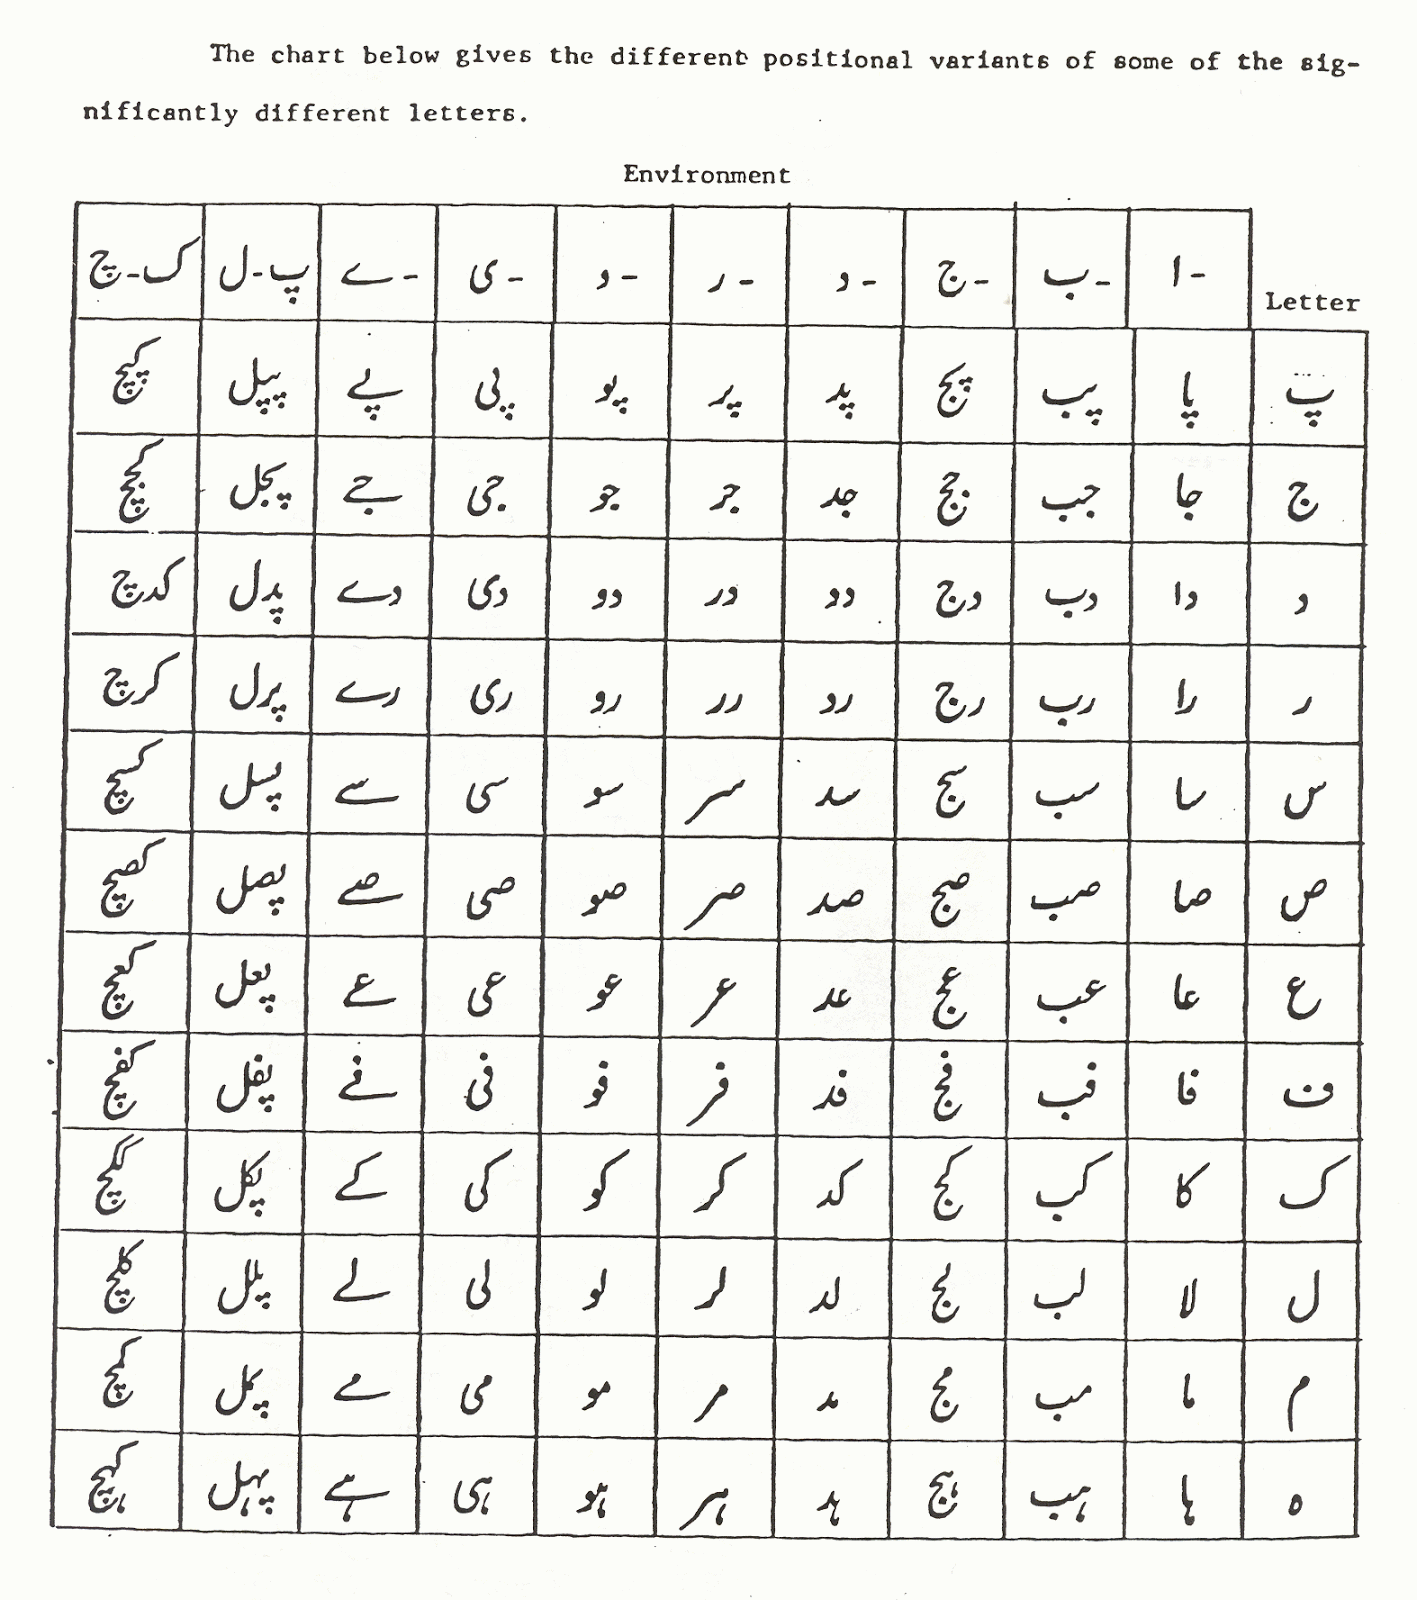 The chart below gives the different positional variants of some of the sig-
nificantly different letters.
Environment
Letter -ا -ب -ج -د -ر -و -ی -ے پ-ل ک-چ
پ پا پب پج پد پر پو پی پے پپل کپچ
ج جا جب جج جد جر جو جی جے پجل کجچ
د دا دب دج دد در دو دی دے پدل کدچ
ر را رب رج رد رر رو ری رے پرل کرچ
س سا سب سج سد سر سو سی سے پسل کسچ
ص صا صب صج صد صر صو صی صے پصل کصچ
ع عا عب عج عد عر عو عی عے پعل کعچ
ف فا فب فج فد فر فو فی فے پفل کفچ
ک کا کب کج کد کر کو کی کے پکل ککچ
ل لا لب لج لد لر لو لی لے پلل کلچ
م ما مب مج مد مر مو می مے پمل کمچ
ہ ہا ہب ہج ہد ہر ہو ہی ہے پہل کہچ